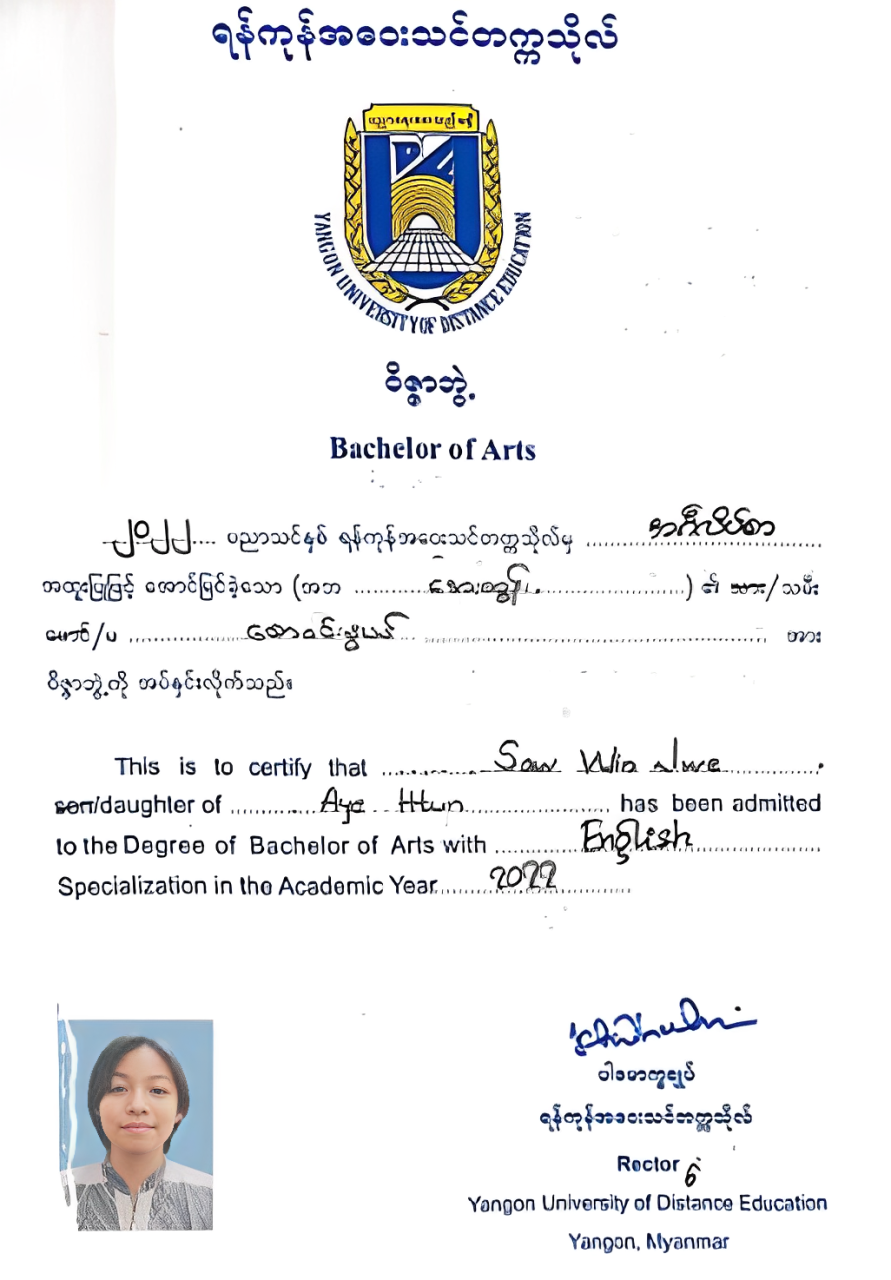 ရန်ကုန်အဝေးသင်တက္ကသိုလ်
YANGON UNIVERSITY OF DISTANCE EDUCATION
ဝိဇ္ဇာဘွဲ့
Bachelor of Arts
၂၀၂၂.... ပညာသင်နှစ် ရန်ကုန်အဝေးသင်တက္ကသိုလ်မှ ........ အင်္ဂလိပ်စာ ........
အထူးပြုဖြင့် အောင်မြင်ခဲ့သော (အဘ ........ အေးထွန်း ........) ၏ သား/သမီး
မောင်/မ ........ စောဝင်းနွယ် ........ အား
ဝိဇ္ဇာဘွဲ့ကို အပ်နှင်းလိုက်သည်။
This is to certify that ........ Saw Win Nwe ........
son/daughter of ........ Aye Htun ........ has been admitted
to the Degree of Bachelor of Arts with ........ English ........
Specialization in the Academic Year ........ 2022 ........
ပါမောက္ခချုပ်
ရန်ကုန်အဝေးသင်တက္ကသိုလ်
Rector
Yangon University of Distance Education
Yangon, Myanmar